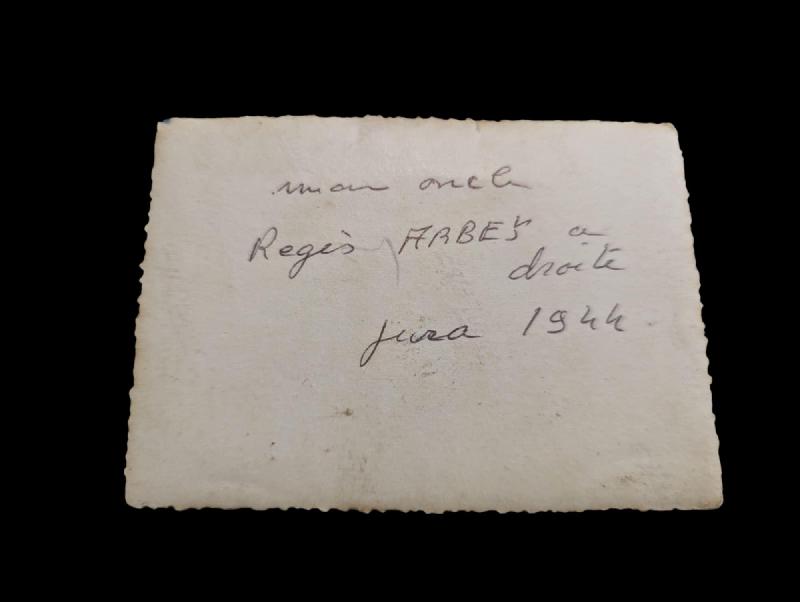 mon oncle
Regis ARBEY a
droite
jura 1944